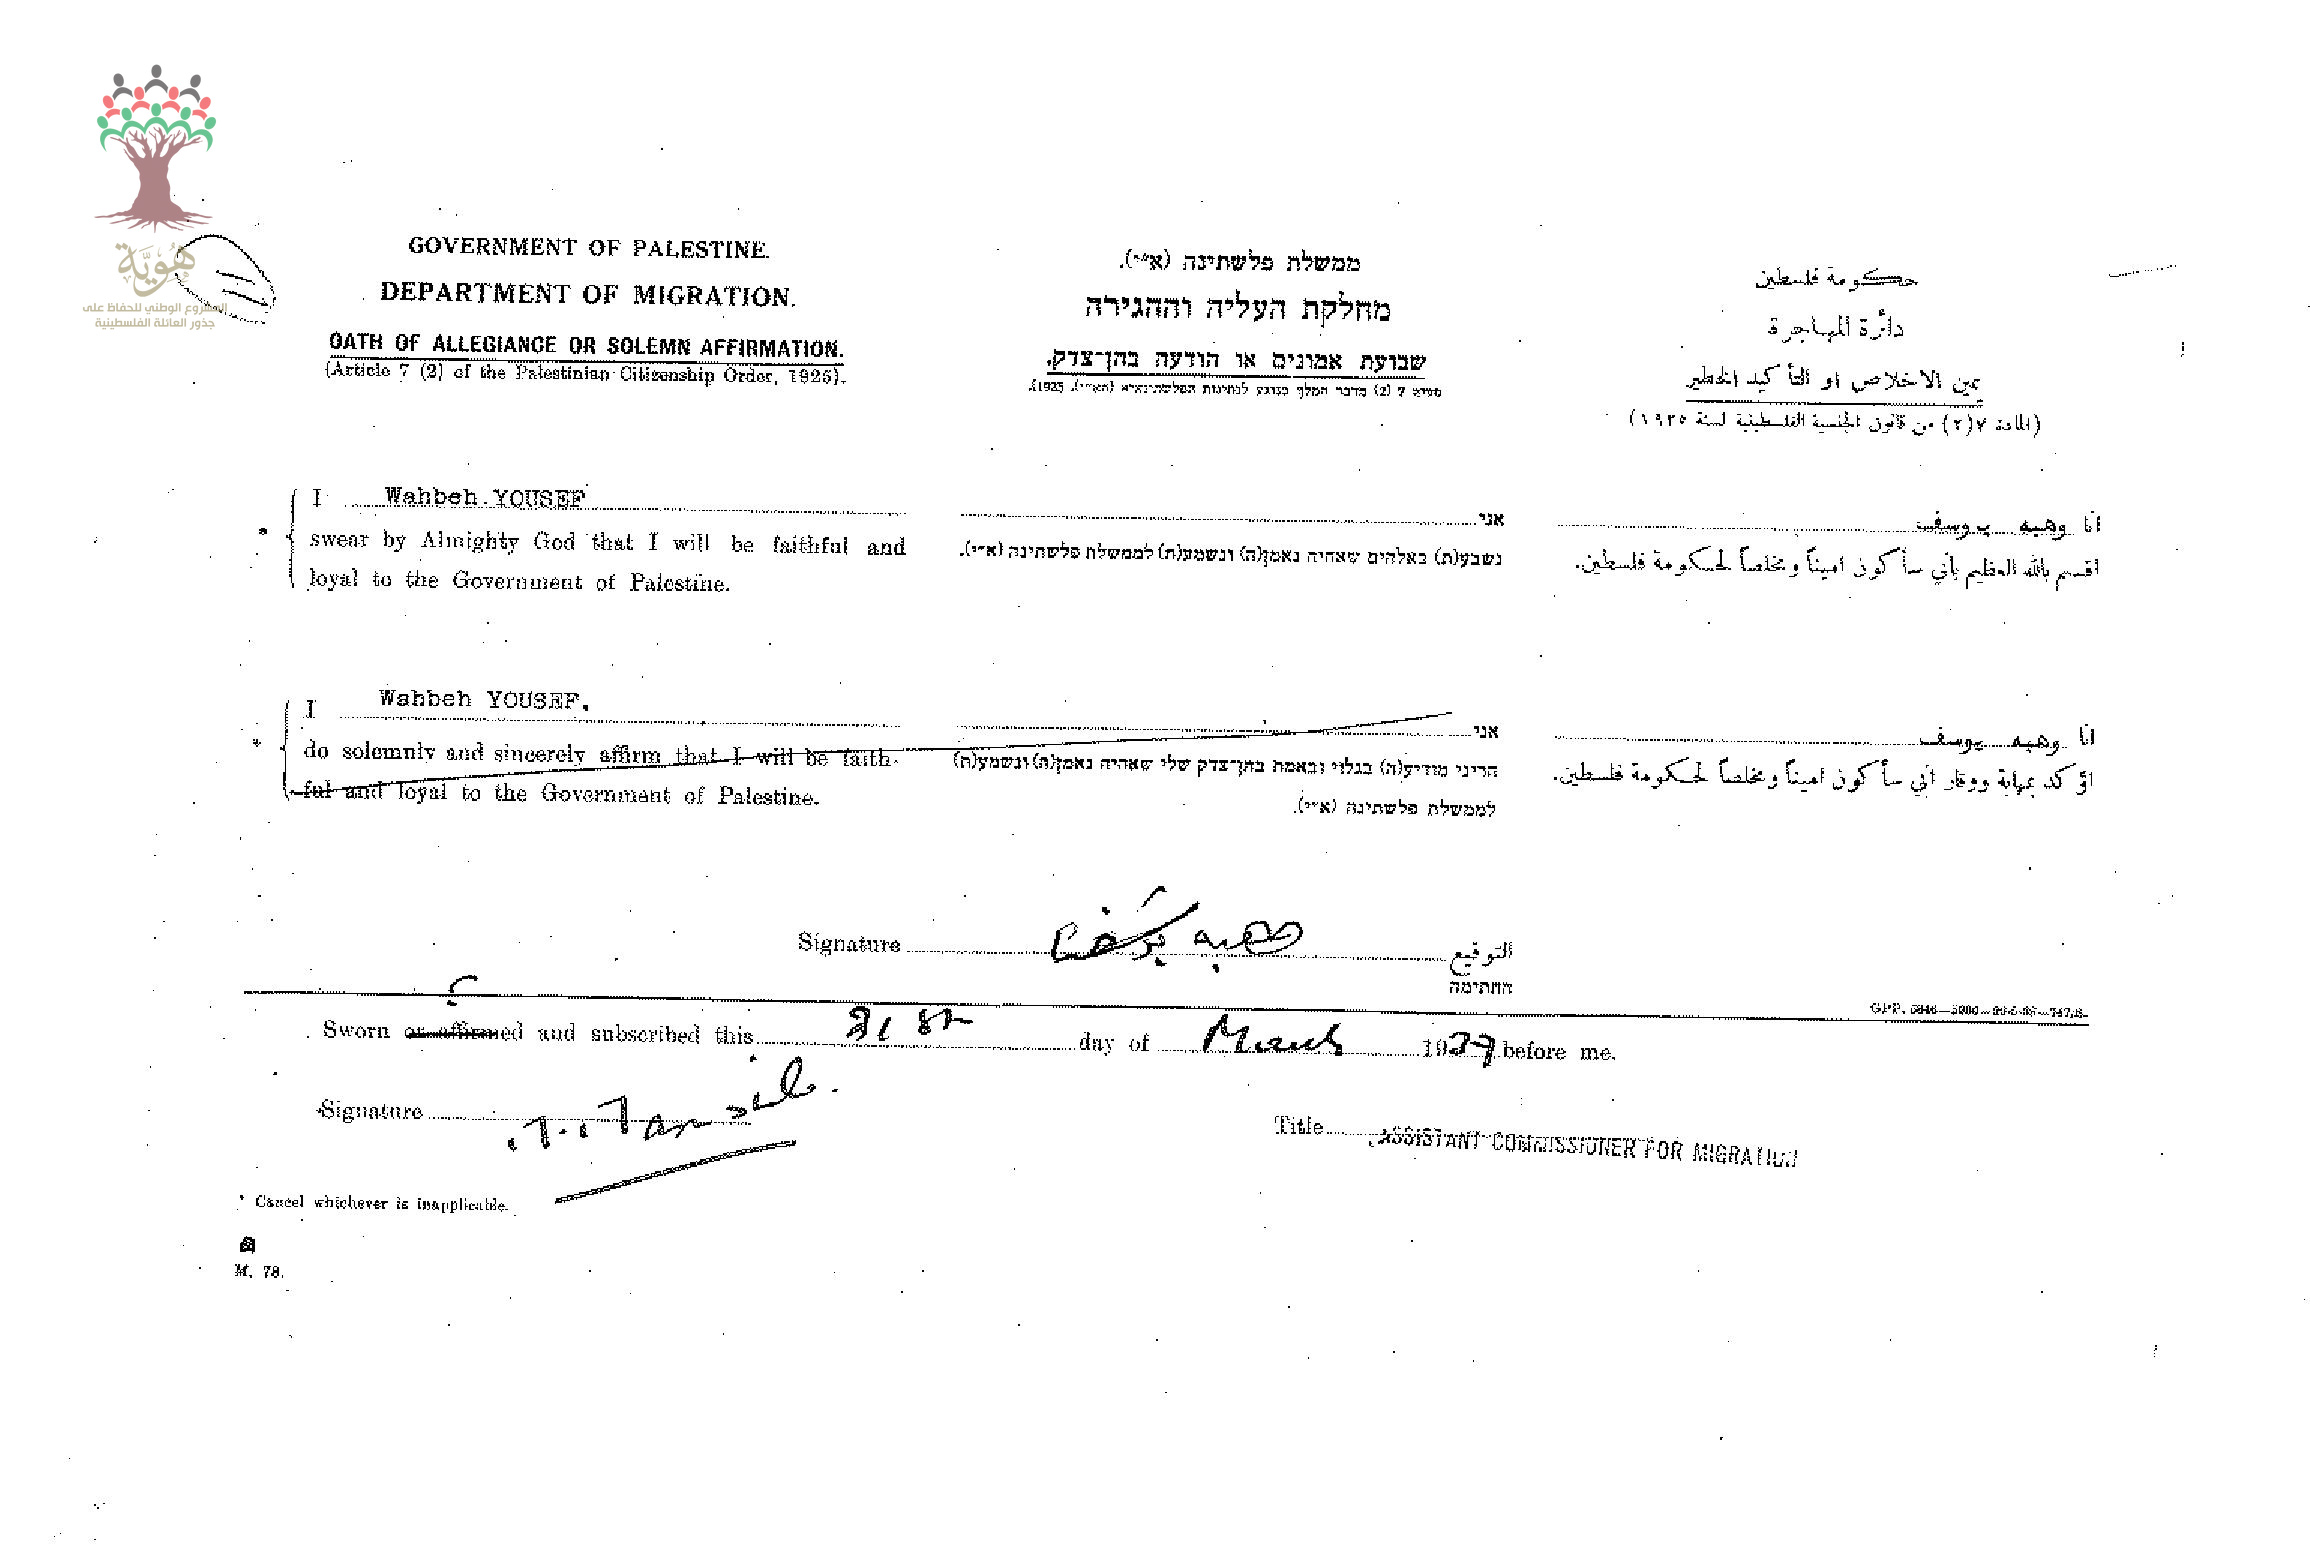 هُوِيَّة
المشروع الوطني للحفاظ على
جذور العائلة الفلسطينية
GOVERNMENT OF PALESTINE.
DEPARTMENT OF MIGRATION.
OATH OF ALLEGIANCE OR SOLEMN AFFIRMATION.
(Article 7 (2) of the Palestinian Citizenship Order, 1925).
ממשלת פלשתינה (א״י).
מחלקת העליה וההגירה
שבועת אמונים או הודעה בהן־צדק.
(2) מדבר המלך בנוגע לנתינות הפלשתינאית (הא״י), 1925).
حكومة فلسطين
دائرة المهاجرة
يمين الاخلاص او التأكيد الخطير
(المادة ٧(٢) من قانون الجنسية الفلسطينية لسنة ١٩٢٥)
I Wahbeh YOUSEF
swear by Almighty God that I will be faithful and
loyal to the Government of Palestine.
אני
נשבע(ת) באלהים שאהיה נאמן(ה) ונשמע(ת) לממשלת פלשתינה (א״י).
انا وهبه يوسف
اقسم بالله العظيم باني سأكون اميناً ومخلصاً لحكومة فلسطين.
I Wahbeh YOUSEF.
do solemnly and sincerely affirm that I will be faith-
ful and loyal to the Government of Palestine.
אני
הריני מודיע(ה) בגלוי ובאמת בהן־צדק שלי שאהיה נאמן(ה) ונשמע(ת)
לממשלת פלשתינה (א״י).
انا وهبه يوسف
اؤكد بمهابة ووقار اني سأكون اميناً ومخلصاً لحكومة فلسطين.
Signature وهبه يوسف التوقيع
החתימה
Sworn or affirmed and subscribed this 31st day of March 1937 before me.
Signature
Title ASSISTANT COMMISSIONER FOR MIGRATION
* Cancel whichever is inapplicable.
M. 78.